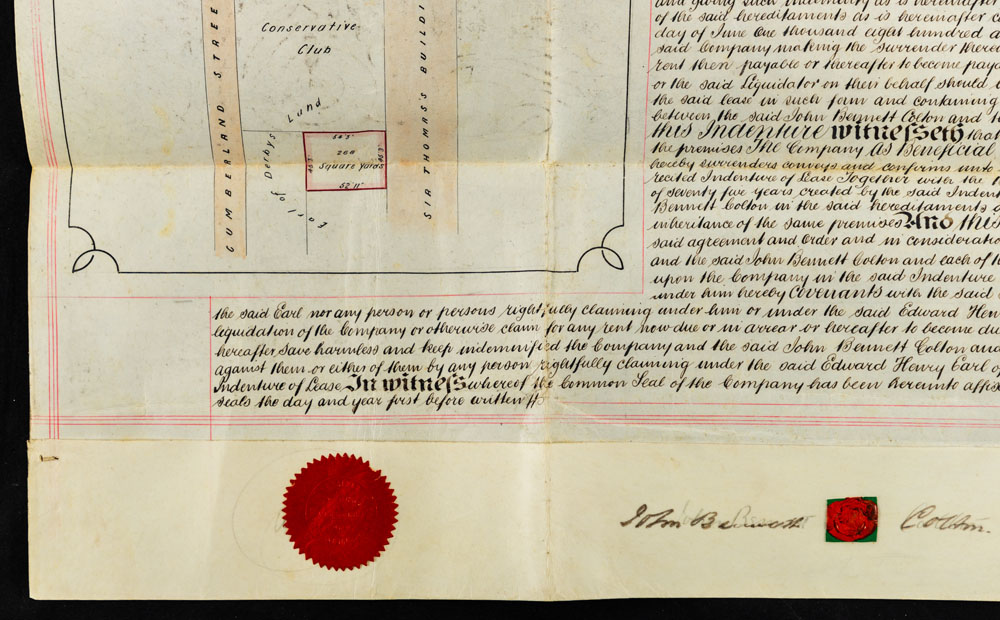 Conservative
Club
CUMBERLAND STREE
SIR THOMAS'S BUILDI
Earl of Derbys Land
266
Square Yards
52.11"
and giving such indemnity as is hereinafter
of the said hereditaments as is hereinafter c
day of June One thousand eight hundred a
said Company making the surrender thereo
rent then payable or thereafter to become paya
or the said Liquidator on their behalf should
the said lease in such form and containing
between the said John Bennett Colton and
this Indenture witnesseth that
the premises The Company As Beneficial
hereby surrenders conveys and confirms unto
recited Indenture of Lease Together with the
of seventy five years created by the said Indent
Bennett Colton in the said hereditaments a
inheritance of the same premises And this
said agreement and Order and in consideratio
and the said John Bennett Colton and each of th
upon the Company in the said Indenture
under him hereby Covenants with the said
the said Earl nor any person or persons rightfully claiming under him or under the said Edward Hen
liquidation of the Company or otherwise claim for any rent now due or in arrear or hereafter to become du
hereafter save harmless and keep indemnified the Company and the said John Bennett Colton and
against them or either of them by any person rightfully claiming under the said Edward Henry Earl of
Indenture of Lease In witness whereof the Common Seal of the Company has been hereunto affix
seals the day and year first before written
John Bennett Colton.